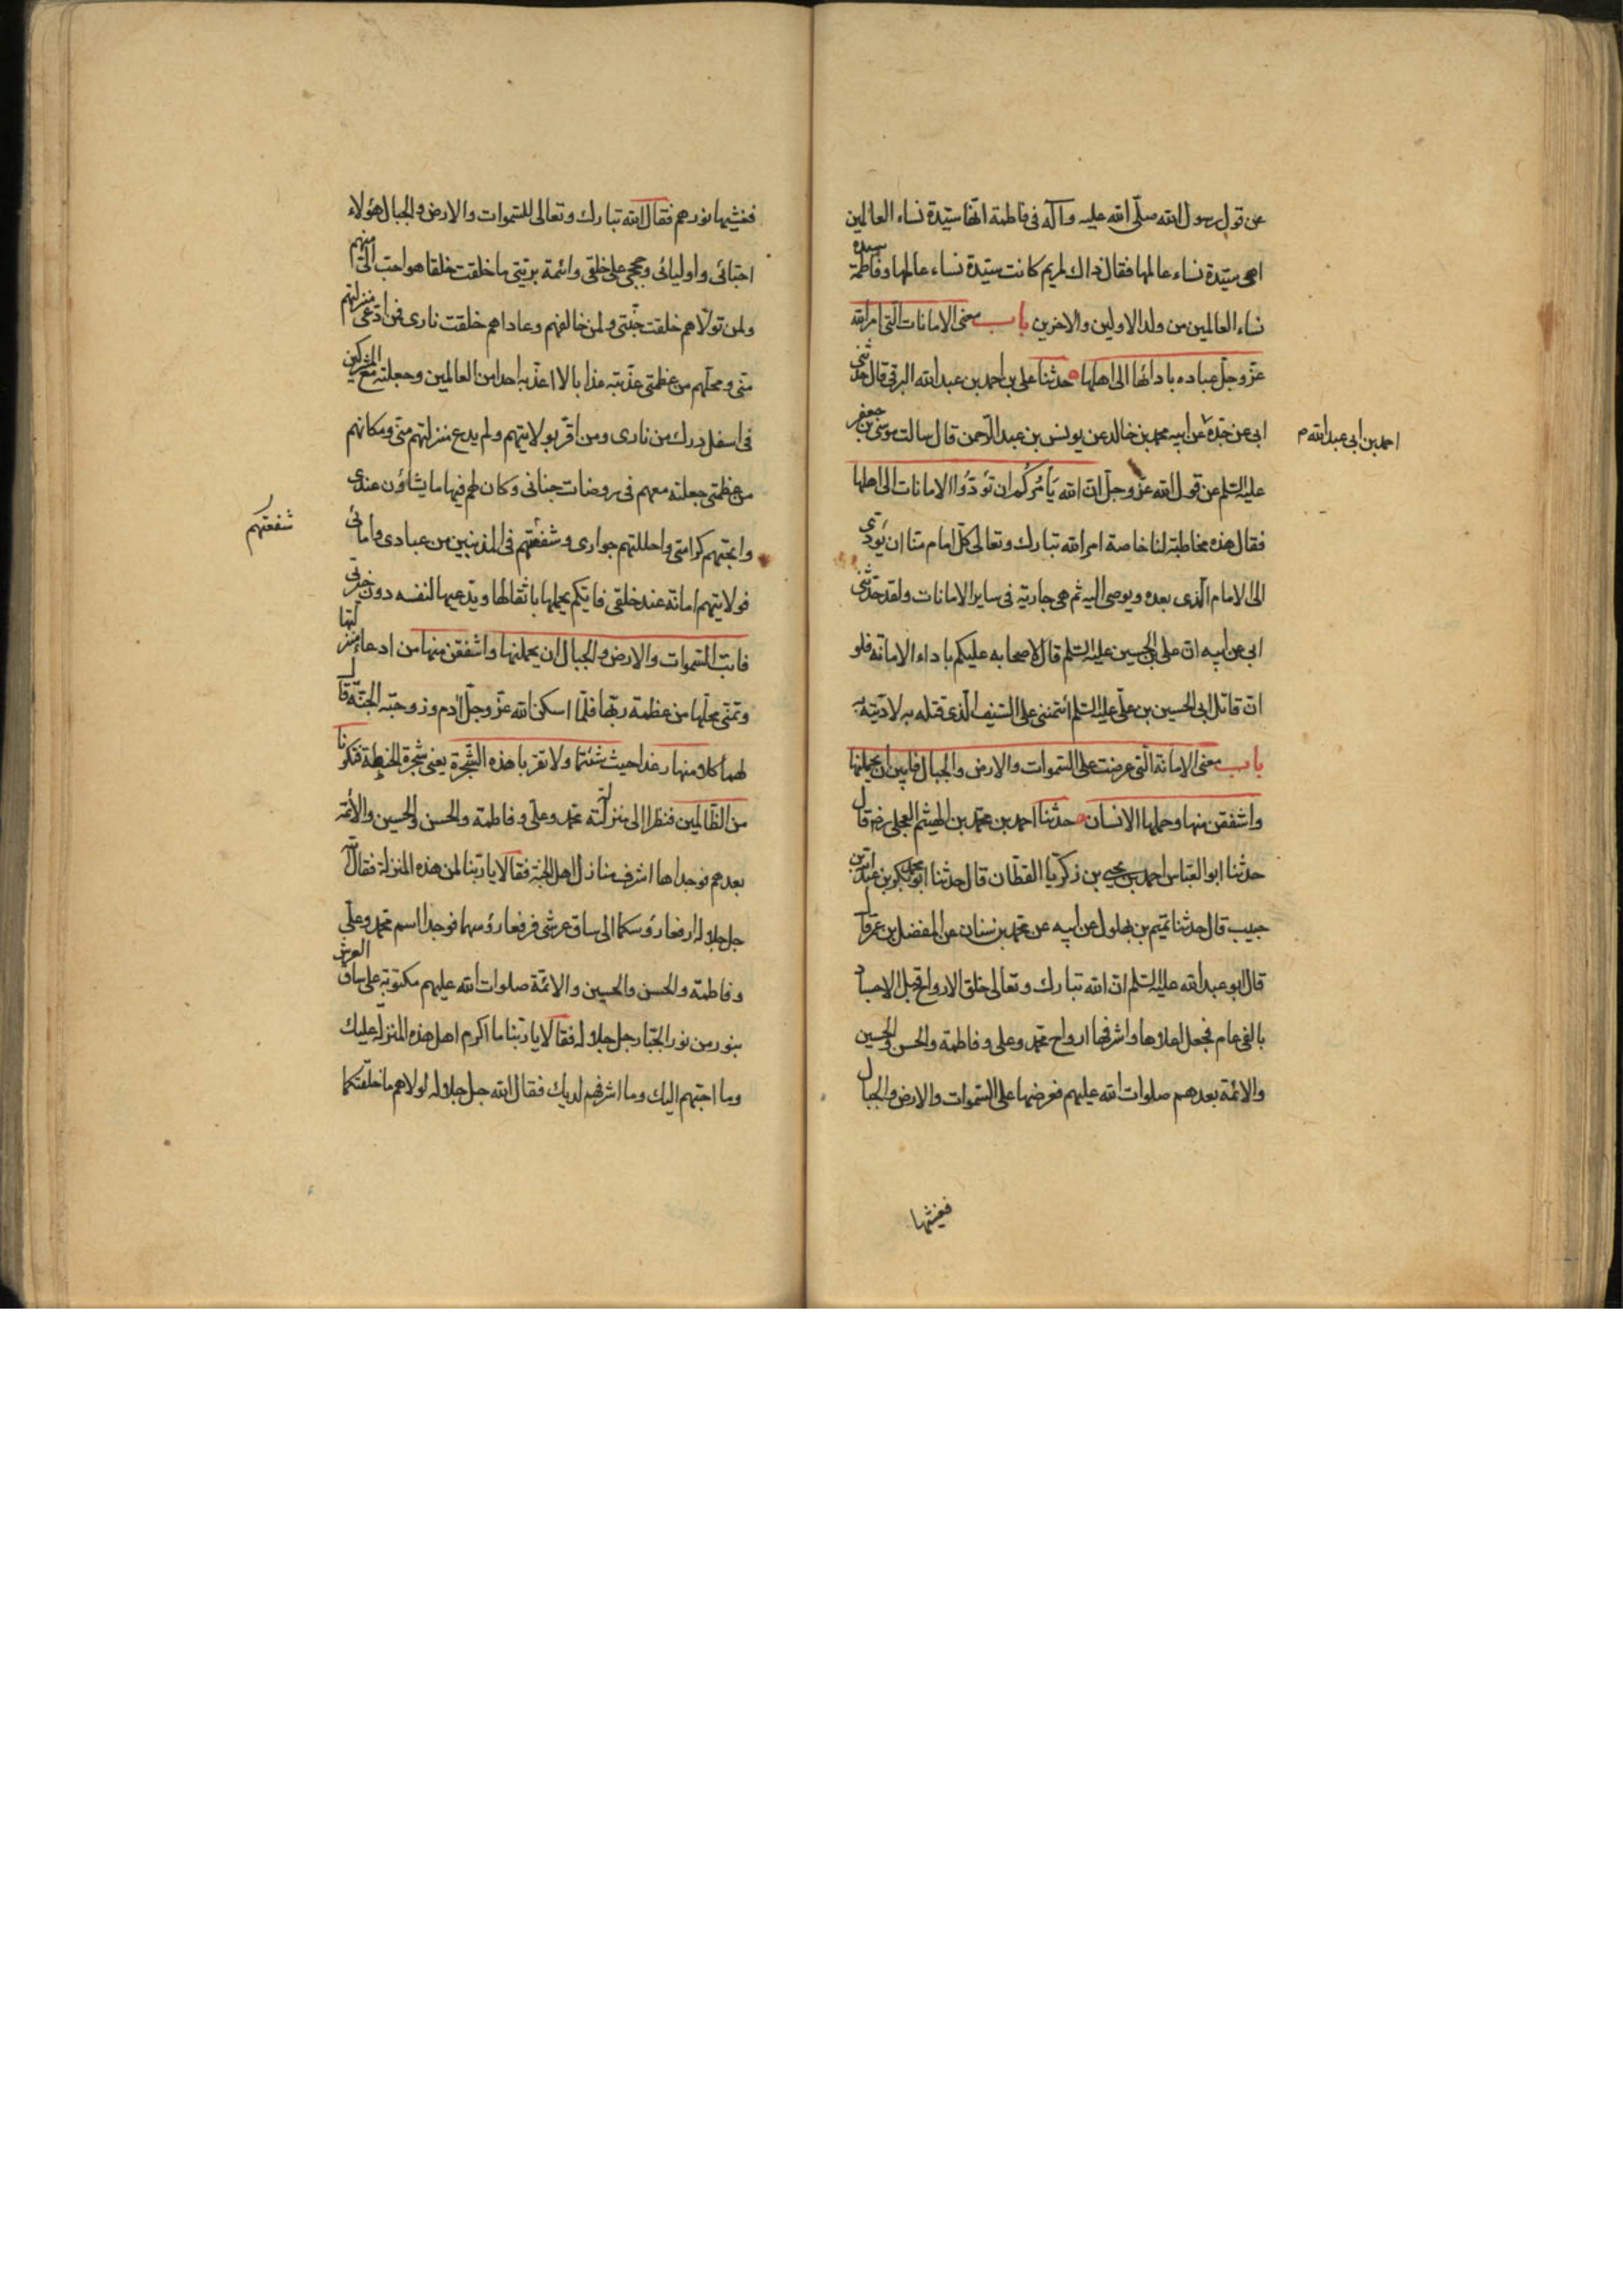 عن قول رسول الله صلّى الله عليه وآله في فاطمة انّها سيّدة نساء العالمين
اهى سيّدة نساء عالمها فقال ذاك لمريم كانت سيّدة نساء عالمها وفاطمة سيدة
نساء العالمين من ولد الاولين والاخرين باب معنى الامانات التى امر الله
عزّ وجلّ عباده بادائها الى اهلها حدثنا على بن احمد بن عبد الله البرقى قال حدثنى
ابى عن جدّه عن ابيه محمد بن خالد عن يونس بن عبد الرّحمن قال سالت موسى بن جعفر
احمد بن ابى عبد الله م
عليه السّلم عن قول الله عزّ وجلّ انّ الله يَأمُركُم ان تؤدّوا الامانات الى اهلها
فقال هذه مخاطبة لنا خاصة امر الله تبارك وتعالى كلّ امام منّا ان يؤدّى
الى الامام الّذى بعده ويوصى اليه ثم هى جارية فى ساير الامانات ولقد حدّثنى
ابى عن ابيه انّ على بن الحسين عليه السّلم قال لاصحابه عليكم باداء الامانة فلو
انّ قاتل ابى الحسين بن علىّ عليه السّلم ائتمننى على السّيف الّذى قتله به لادّيته اليه
باب معنى الامانة الّتى عرضت على السّموات والارض والجبال فابين ان يحملنها
واشفقن منها وحملها الانسان حدّثنا احمد بن محمّد بن الهيثم العجلى رضه قال
حدثنا ابو العبّاس احمد بن يحيى بن زكريّا القطّان قال حدثنا ابو محمد بكر بن عبد الله بن
حبيب قال حدثنا تميم بن بهلول عن ابيه عن محمّد بن سنان عن المفضل بن عمر قال
قال ابو عبد الله عليه السّلم انّ الله تبارك وتعالى خلق الارواح قبل الاجساد
بالفى عام فجعل اعلاها واشرفها ارواح محمّد وعلى وفاطمة والحسن والحسين
والائمّة بعدهم صلوات الله عليهم فعرضها على السّموات والارض والجبال
فغشيها
فغشيها نورهم فقال الله تبارك وتعالى للسّموات والارض والجبال هؤلاء
احبّائى واوليائى وحججى على خلقى وائمة بريّتى ما خلقت خلقا هو احب الىّ منهم
ولمن تولّاهم خلقت جنّتى ولمن خالفهم وعاداهم خلقت نارى فمن ادّعى منزلتهم
منّى ومحلّهم من عظمتى عذّبته عذابا لا اعذّبه احدا من العالمين وجعلته مع المشركين
فى اسفل درك من نارى ومن اقرّ بولايتهم ولم يدع منزلتهم منى ومكانهم
من عظمتى جعلته معهم فى روضات جناتى وكان لهم فيها ما يشاؤن عندى
وابحتهم كرامتى واحللتهم جوارى وشفعتهم فى المذنبين من عبادى وامائى
شفعتهم
فولايتهم امانة عند خلقى فايّكم يحملها باثقالها ويدّعيها لنفسه دون خيرتى
فابت السّموات والارض والجبال ان يحملنها واشفقن منها من ادعاء منزلتها
وتمنّى محلّها من عظمة ربّها فلمّا اسكن الله عزّ وجلّ آدم وزوجته الجنّة قال
لهما كلا منها رغدا حيث شئتما ولا تقربا هذه الشّجرة يعنى شجرة الحنطة فتكونا
من الظّالمين فنظرا الى منزلة محمّد وعلى وفاطمة والحسن والحسين والائمّة
بعدهم فوجداها اشرف منازل اهل الجنّة فقالا يا ربّنا لمن هذه المنزلة فقال الله
جل جلاله ارفعا رؤسكما الى ساق عرشى فرفعا رؤسهما فوجدا اسم محمّد وعلى
وفاطمة والحسن والحسين والائمّة صلوات الله عليهم مكتوبة على ساق العرش
بنور من نور الجبّار جل جلاله فقالا يا ربّنا ما اكرم اهل هذه المنزلة عليك
وما احبّهم اليك وما اشرفهم لديك فقال الله جل جلاله لولاهم ما خلقتكما